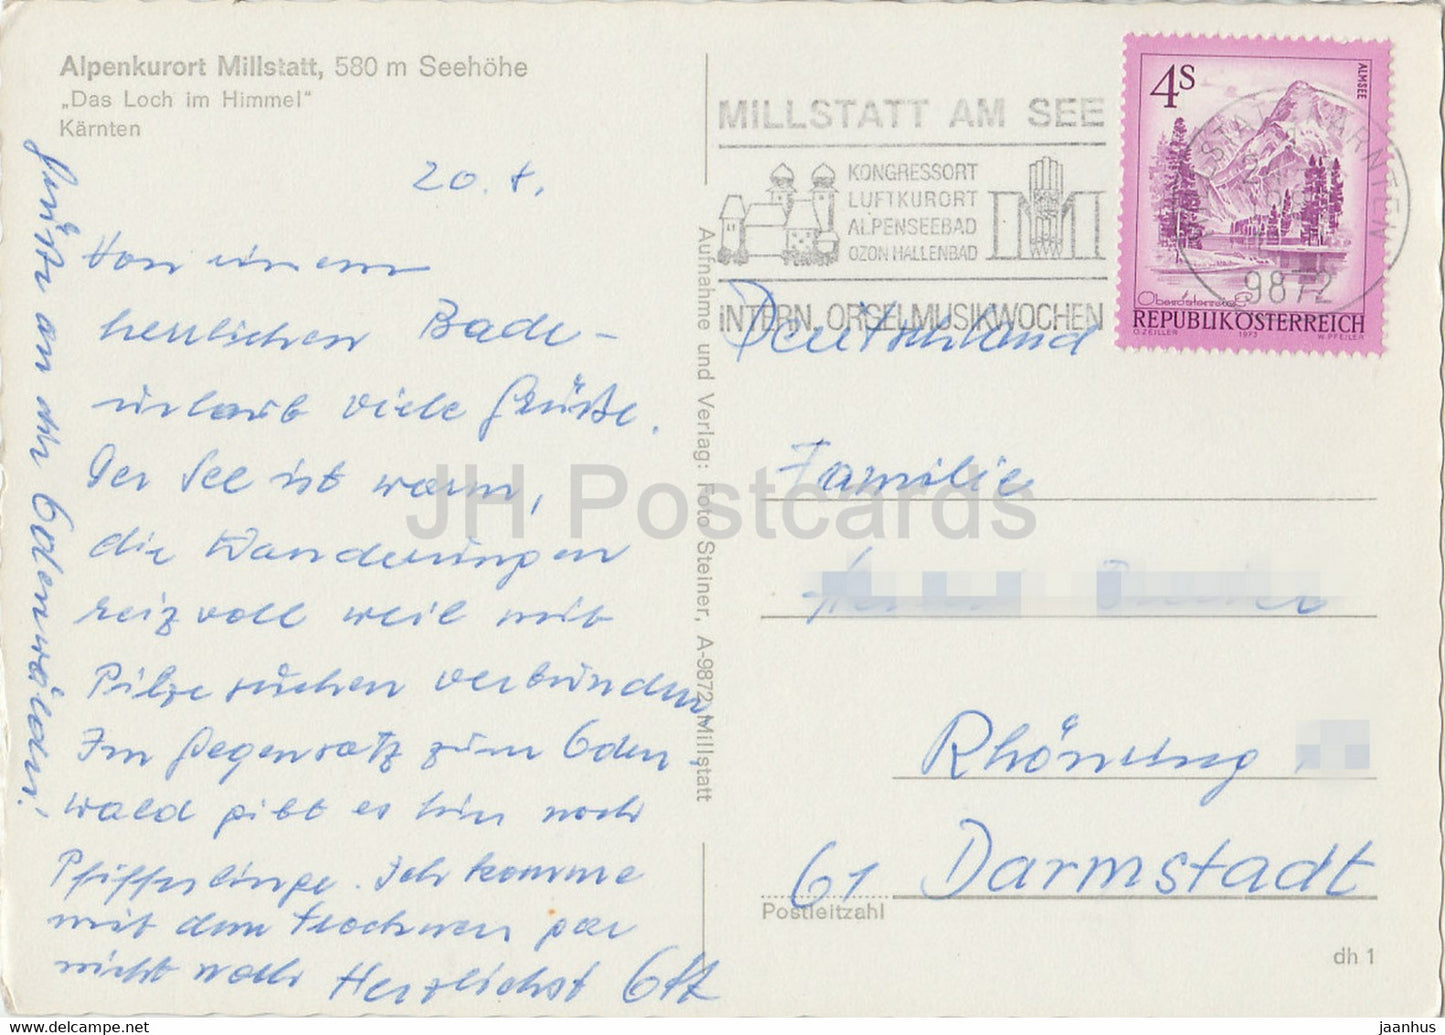 Alpenkurort Millstatt, 580 m Seehöhe
„Das Loch im Himmel"
Kärnten
20. 8.
Von einem
herrlichen Bade-
urlaub viele Grüße.
Der See ist warm,
die Wanderungen
reizvoll weil mit
Pilze suchen verbunden.
Im Gegensatz zum Oden
wald gibt es hier noch
Pfifferlinge. Ich komme
mit dem trocknen gar
nicht nach Herzlichst Ott
Grüße an die Odenwälder!
Aufnahme und Verlag: Foto Steiner, A-9872 Millstatt
MILLSTATT AM SEE
KONGRESSORT
LUFTKURORT
ALPENSEEBAD
OZON HALLENBAD
INTERN. ORGELMUSIKWOCHEN
4S
ALMSEE
9872
Oberösterreich
REPUBLIK ÖSTERREICH
O. ZEILLER 1973 W. PFEILER
Deutschland
Familie
Rhönring
61 Darmstadt
Postleitzahl
dh 1
JH Postcards
www.delcampe.net
jaanhus